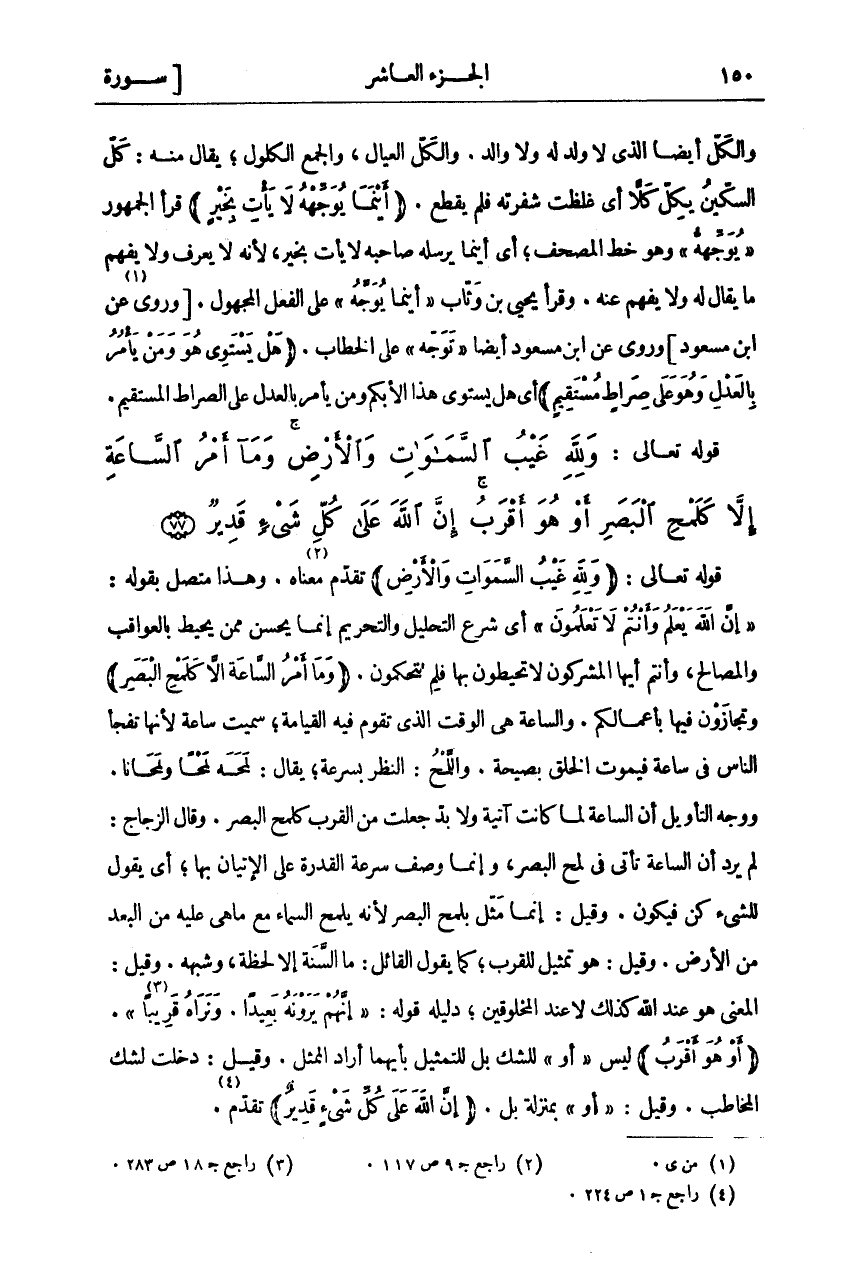 ١٥٠ الجــزء العـاشر [ ســورة
والكَلّ أيضـا الذى لا ولد له ولا والد . والكَلّ العيال ، والجمع الكلول ؛ يقال منــه : كَلّ
السكّينُ يكِلّ كَلًّا أى غلظت شفرته فلم يقطع . ﴿ أَيْنَمَا يُوَجِّهْهُ لَا يَأْتِ بِخَيْرٍ ﴾ قرأ الجمهور
« يُوَجِّههُ » وهو خط المصحف ؛ أى أينما يرسله صاحبه لا يأت بخير، لأنه لا يعرف ولا يفهم
ما يقال له ولا يفهم عنه . وقرأ يحيى بن وَثّاب « أينما يُوَجَّهُ » على الفعل المجهول . [ وروى عن (١)
ابن مسعود ] وروى عن ابن مسعود أيضا « تَوَجّه » على الخطاب . ﴿ هَلْ يَسْتَوِى هُوَ وَمَنْ يَأْمُرُ
بِالْعَدْلِ وَهُوَ عَلَى صِرَاطٍ مُسْتَقِيمٍ ﴾ أى هل يستوى هذا الأبكم ومن يأمر بالعدل على الصراط المستقيم .
قوله تعـالى : وَلِلَّهِ غَيْبُ ٱلسَّمَـٰوَٰتِ وَٱلْأَرْضِ ۚ وَمَآ أَمْرُ ٱلسَّـاعَةِ
إِلَّا كَلَمْحِ ٱلْبَصَرِ أَوْ هُوَ أَقْرَبُ ۚ إِنَّ ٱللَّهَ عَلَىٰ كُلِّ شَىْءٍ قَدِيرٌ ٧٧
قوله تعـالى : ﴿ وَلِلَّهِ غَيْبُ السَّمَوَاتِ وَالْأَرْضِ ﴾ تقدّم معناه (٢) . وهـذا متصل بقوله :
« إِنَّ اللَّهَ يَعْلَمُ وَأَنْتُمْ لَا تَعْلَمُونَ » أى شرع التحليل والتحريم إنمـا يحسن ممن يحيط بالعواقب
والمصالح، وأنتم أيها المشركون لا تحيطون بها فلم تتحكمون . ﴿ وَمَا أَمْرُ السَّاعَةِ الَّا كَلَمْحِ الْبَصَرِ ﴾
وتجازَوْن فيها بأعمـالكم . والساعة هى الوقت الذى تقوم فيه القيامة ؛ سميت ساعة لأنها تفجأ
الناس فى ساعة فيموت الخلق بصيحة . واللَّمْحُ : النظر بسرعة ؛ يقال : لَمَحَه لَمْحًا ولَمَحَانا .
ووجه التأويل أن الساعة لمـا كانت آتية ولا بدّ جعلت من القرب كلمح البصر . وقال الزجاج :
لم يرد أن الساعة تأتى فى لمح البصر، وإنمـا وصف سرعة القدرة على الإتيان بها ؛ أى يقول
للشىء كن فيكون . وقيل : إنمـا مَثّل بلمح البصر لأنه يلمح السماء مع ماهى عليه من البعد
من الأرض . وقيل : هو تمثيل للقرب ؛ كما يقول القائل : ما السَّنَة إلا لحظة ، وشبهه . وقيل :
المعنى هو عند الله كذلك لا عند المخلوقين ؛ دليله قوله : « إِنَّهُمْ يَرَوْنَهُ بَعِيدًا . وَنَرَاهُ قَرِيبًا » (٣) .
﴿ أَوْ هُوَ أَقْرَبُ ﴾ ليس « أو » للشك بل للتمثيل بأيهما أراد الممثل . وقيـل : دخلت لشك
المخاطب . وقيل : « أو » بمنزلة بل . ﴿ إِنَّ اللَّهَ عَلَى كُلِّ شَىْءٍ قَدِيرٌ ﴾ تقدّم (٤) .
(١) من ى . (٢) راجع جـ ٩ ص ١١٧ . (٣) راجع جـ ١٨ ص ٢٨٣ .
(٤) راجع جـ ١ ص ٢٢٤ .